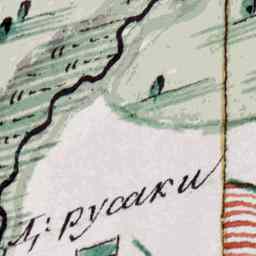 д: русаки